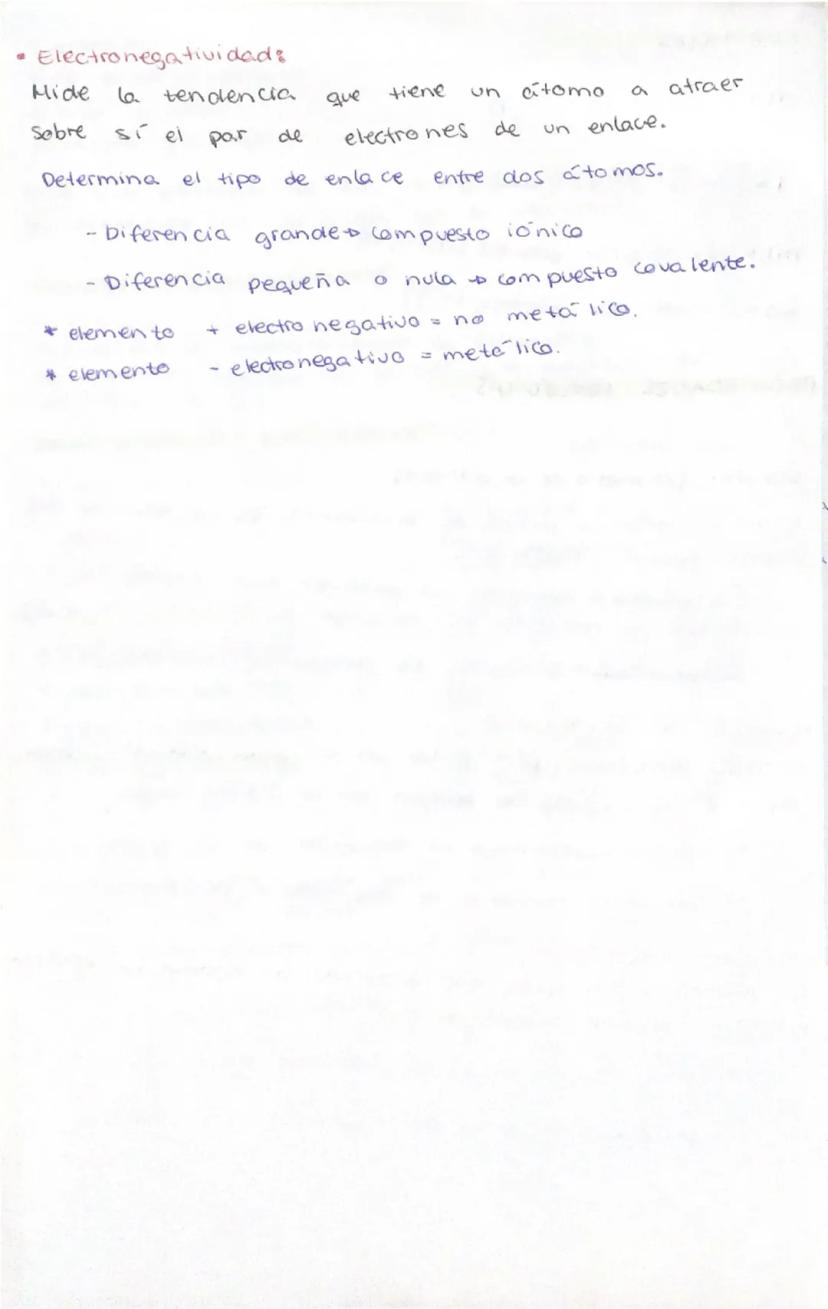 • Electronegatividad:
Mide la tendencia que tiene un átomo a atraer
sobre sí el par de electrones de un enlace.
Determina el tipo de enlace entre dos átomos.
- Diferencia grande → compuesto iónico
- Diferencia pequeña o nula → compuesto covalente.
* elemento + electronegativo = no metálico.
* elemento - electronegativo = metálico.